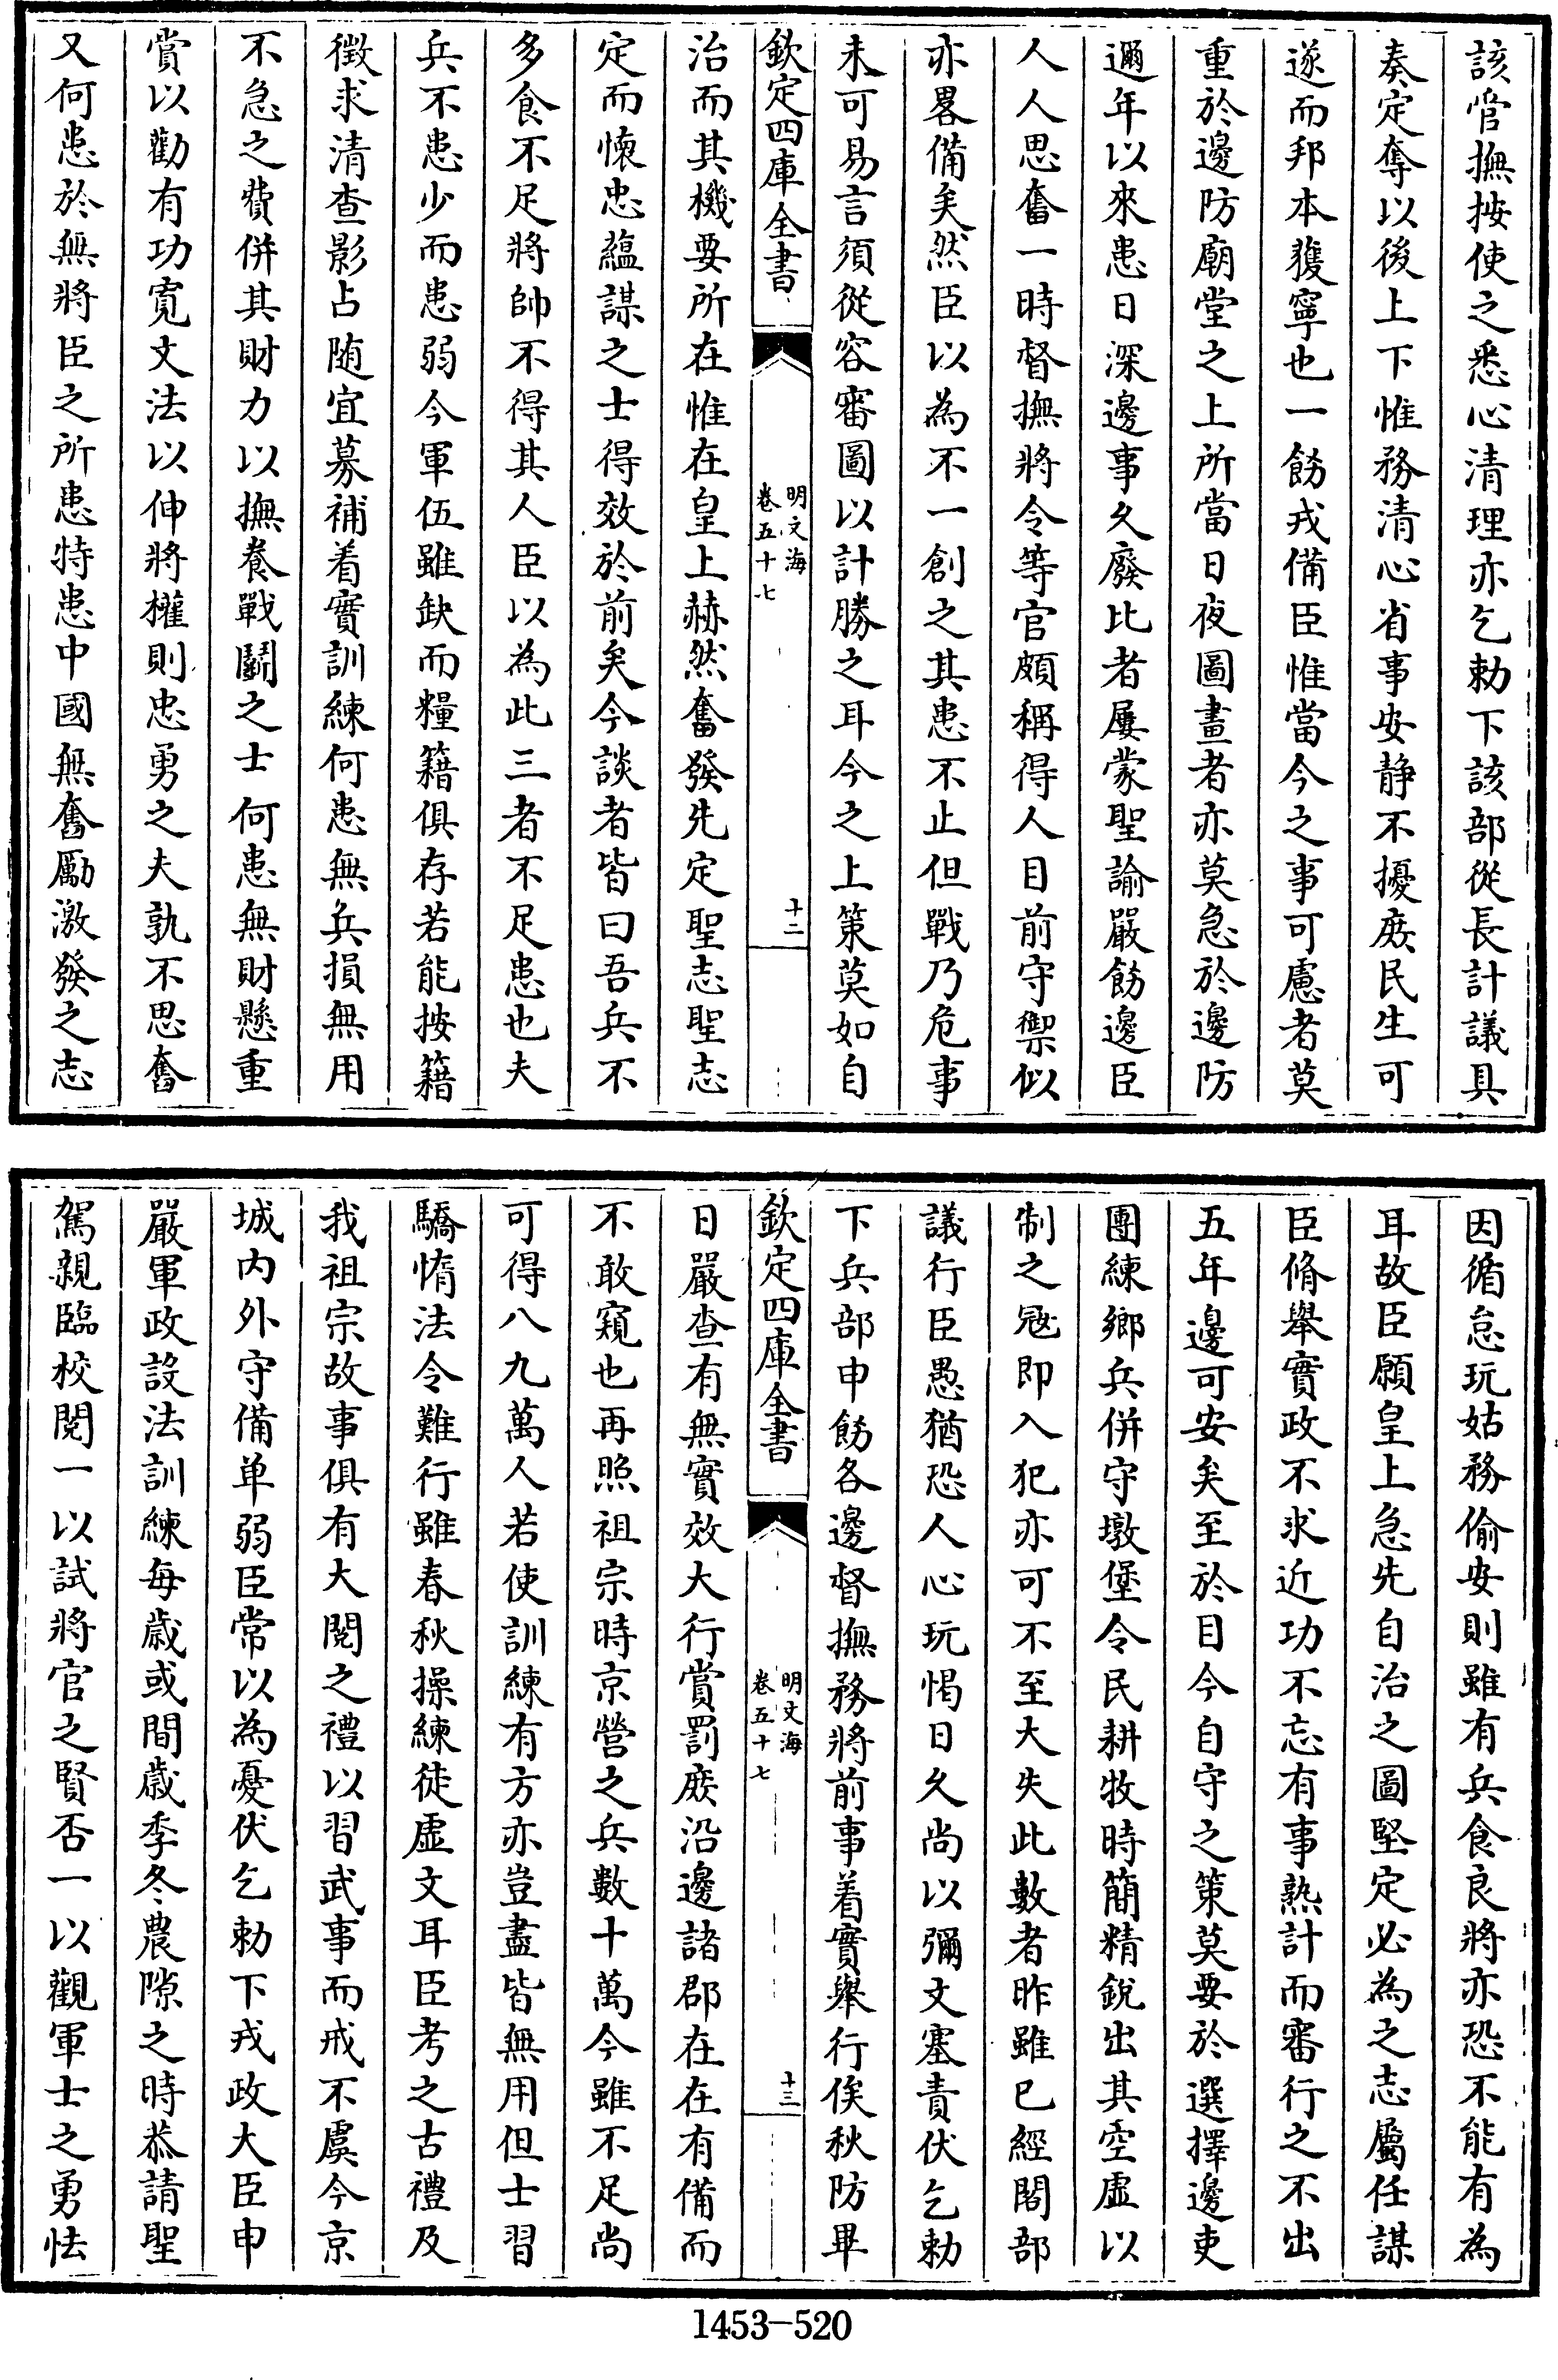 該管撫按使之悉心清理亦乞勅下該部從長計議具
奏定奪以後上下惟務清心省事安静不擾庻民生可
遂而邦本獲寧也一飭戎備臣惟當今之事可慮者莫
重於邊防廟堂之上所當日夜圖畫者亦莫急於邊防
邇年以來患日深邊事久廢比者屢蒙聖諭嚴飭邊臣
人人思奮一時督撫將令等官頗稱得人目前守禦似
亦畧備矣然臣以為不一創之其患不止但戰乃危事
未可易言須從容審圖以計勝之耳今之上策莫如自
欽定四庫全書
明文海
卷五十七
十二
治而其機要所在惟在皇上赫然奮發先定聖志聖志
定而懐忠蘊謀之士得效於前矣今談者皆曰吾兵不
多食不足將帥不得其人臣以為此三者不足患也夫
兵不患少而患弱今軍伍雖缺而糧籍俱存若能按籍
徴求清查影占随宜募補着實訓練何患無兵損無用
不急之費併其財力以撫養戰鬭之士何患無財懸重
賞以勸有功寛文法以伸將權則忠勇之夫孰不思奮
又何患於無將臣之所患特患中國無奮勵激發之志
因循怠玩姑務偷安則雖有兵食良將亦恐不能有為
耳故臣願皇上急先自治之圖堅定必為之志屬任謀
臣脩舉實政不求近功不忘有事熟計而審行之不出
五年邊可安矣至於目今自守之策莫要於選擇邊吏
團練鄉兵併守墩堡令民耕牧時簡精銳出其空虚以
制之冦即入犯亦可不至大失此數者昨雖已經閣部
議行臣愚猶恐人心玩愒日久尚以彌文塞責伏乞勅
下兵部申飭各邊督撫務將前事着實舉行俟秋防畢
欽定四庫全書
明文海
卷五十七
十三
日嚴查有無實效大行賞罰庻沿邊諸郡在在有備而
不敢窺也再照祖宗時京營之兵數十萬今雖不足尚
可得八九萬人若使訓練有方亦豈盡皆無用但士習
驕惰法令難行雖春秋操練徒虚文耳臣考之古禮及
我祖宗故事俱有大閱之禮以習武事而戒不虞今京
城内外守備单弱臣常以為憂伏乞勅下戎政大臣申
嚴軍政設法訓練每歲或間歲季冬農隙之時恭請聖
駕親臨校閱一以試將官之賢否一以觀軍士之勇怯
1453-520